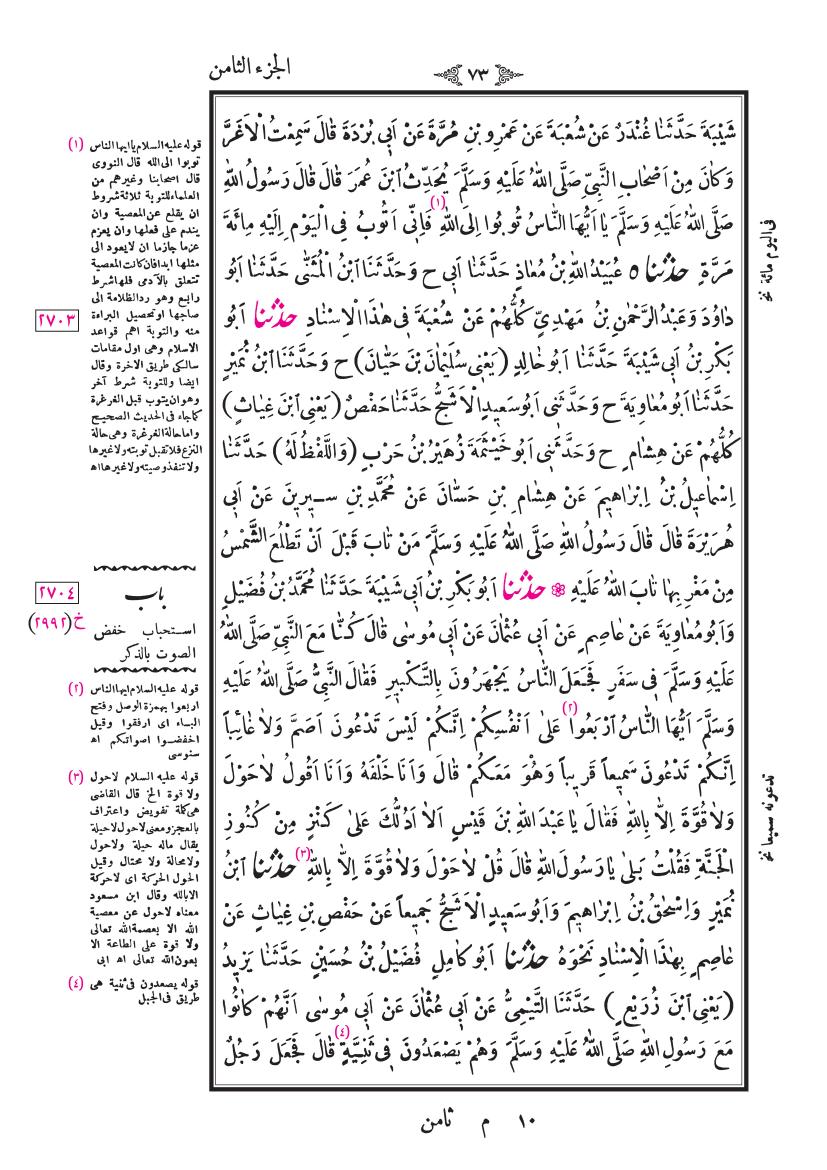 الجزء الثامن
٧٣
شَيْبَةَ حَدَّثَنَا غُنْدَرٌ عَنْ شُعْبَةَ عَنْ عَمْرِو بْنِ مُرَّةَ عَنْ اَبِي بُرْدَةَ قَالَ سَمِعْتُ الْاَغَرَّ
وَكَانَ مِنْ اَصْحَابِ النَّبِيِّ صَلَّى اللّٰهُ عَلَيْهِ وَسَلَّمَ يُحَدِّثُ ابْنَ عُمَرَ قَالَ قَالَ رَسُولُ اللّٰهِ
صَلَّى اللّٰهُ عَلَيْهِ وَسَلَّمَ يَا اَيُّهَا النَّاسُ تُوبُوا اِلَى اللّٰهِ (١) فَاِنِّي اَتُوبُ فِي الْيَوْمِ اِلَيْهِ مِائَةَ
مَرَّةٍ حَدَّثَنَا ٥ عُبَيْدُ اللّٰهِ بْنُ مُعَاذٍ حَدَّثَنَا اَبِي ح وَحَدَّثَنَا ابْنُ الْمُثَنّٰى حَدَّثَنَا اَبُو
دَاوُدَ وَعَبْدُ الرَّحْمٰنِ بْنُ مَهْدِيٍّ كُلُّهُمْ عَنْ شُعْبَةَ فِي هٰذَا الْاِسْنَادِ حَدَّثَنَا اَبُو
بَكْرِ بْنُ اَبِي شَيْبَةَ حَدَّثَنَا اَبُو خَالِدٍ (يَعْنِي سُلَيْمَانَ بْنَ حَيَّانَ) ح وَحَدَّثَنَا ابْنُ نُمَيْرٍ
حَدَّثَنَا اَبُو مُعَاوِيَةَ ح وَحَدَّثَنِي اَبُو سَعِيدٍ الْاَشَجُّ حَدَّثَنَا حَفْصٌ (يَعْنِي ابْنَ غِيَاثٍ)
كُلُّهُمْ عَنْ هِشَامٍ ح وَحَدَّثَنِي اَبُو خَيْثَمَةَ زُهَيْرُ بْنُ حَرْبٍ (وَاللَّفْظُ لَهُ) حَدَّثَنَا
اِسْمَاعِيلُ بْنُ اِبْرَاهِيمَ عَنْ هِشَامِ بْنِ حَسَّانَ عَنْ مُحَمَّدِ بْنِ سِيرِينَ عَنْ اَبِي
هُرَيْرَةَ قَالَ قَالَ رَسُولُ اللّٰهِ صَلَّى اللّٰهُ عَلَيْهِ وَسَلَّمَ مَنْ تَابَ قَبْلَ اَنْ تَطْلُعَ الشَّمْسُ
مِنْ مَغْرِبِهَا تَابَ اللّٰهُ عَلَيْهِ ❁ حَدَّثَنَا اَبُو بَكْرِ بْنُ اَبِي شَيْبَةَ حَدَّثَنَا مُحَمَّدُ بْنُ فُضَيْلٍ
وَاَبُو مُعَاوِيَةَ عَنْ عَاصِمٍ عَنْ اَبِي عُثْمَانَ عَنْ اَبِي مُوسٰى قَالَ كُنَّا مَعَ النَّبِيِّ صَلَّى اللّٰهُ
عَلَيْهِ وَسَلَّمَ فِي سَفَرٍ فَجَعَلَ النَّاسُ يَجْهَرُونَ بِالتَّكْبِيرِ فَقَالَ النَّبِيُّ صَلَّى اللّٰهُ عَلَيْهِ
وَسَلَّمَ اَيُّهَا النَّاسُ ارْبَعُوا (٢) عَلٰى اَنْفُسِكُمْ اِنَّكُمْ لَيْسَ تَدْعُونَ اَصَمَّ وَلَا غَائِباً
اِنَّكُمْ تَدْعُونَ سَمِيعاً قَرِيباً وَهُوَ مَعَكُمْ قَالَ وَاَنَا خَلْفَهُ وَاَنَا اَقُولُ لَا حَوْلَ
وَلَا قُوَّةَ اِلَّا بِاللّٰهِ فَقَالَ يَا عَبْدَ اللّٰهِ بْنَ قَيْسٍ اَلَا اَدُلُّكَ عَلٰى كَنْزٍ مِنْ كُنُوزِ
الْجَنَّةِ فَقُلْتُ بَلٰى يَا رَسُولَ اللّٰهِ قَالَ قُلْ لَا حَوْلَ وَلَا قُوَّةَ اِلَّا بِاللّٰهِ (٣) حَدَّثَنَا ابْنُ
نُمَيْرٍ وَاِسْحٰقُ بْنُ اِبْرَاهِيمَ وَاَبُو سَعِيدٍ الْاَشَجُّ جَمِيعاً عَنْ حَفْصِ بْنِ غِيَاثٍ عَنْ
عَاصِمٍ بِهٰذَا الْاِسْنَادِ نَحْوَهُ حَدَّثَنَا اَبُو كَامِلٍ فُضَيْلُ بْنُ حُسَيْنٍ حَدَّثَنَا يَزِيدُ
(يَعْنِي ابْنَ زُرَيْعٍ) حَدَّثَنَا التَّيْمِيُّ عَنْ اَبِي عُثْمَانَ عَنْ اَبِي مُوسٰى اَنَّهُمْ كَانُوا
مَعَ رَسُولِ اللّٰهِ صَلَّى اللّٰهُ عَلَيْهِ وَسَلَّمَ وَهُمْ يَصْعَدُونَ فِي ثَنِيَّةٍ (٤) قَالَ فَجَعَلَ رَجُلٌ
فى اليوم مائة نخ
تدعونه سميعا نخ
(١) قوله عليه السلام يا ايها الناس
توبوا الى الله قال النووى
قال اصحابنا وغيرهم من
العلماء للتوبة ثلاثة شروط
ان يقلع عن المعصية وان
يندم على فعلها وان يعزم
عزما جازما ان لا يعود الى
مثلها ابدا فان كانت المعصية
تتعلق بالآدمى فلها شرط
رابع وهو رد الظلامة الى
صاحبها او تحصيل البراءة
منه والتوبة اهم قواعد
الاسلام وهى اول مقامات
سالكى طريق الآخرة وقال
ايضا وللتوبة شرط آخر
وهو ان يتوب قبل الغرغرة
كما جاء فى الحديث الصحيح
واما حالة الغرغرة وهى حالة
النزع فلا تقبل توبته ولا غيرها
ولا تنفذ وصيته ولا غيرها اه
٢٧٠٣
باب
استحباب خفض
الصوت بالذكر
٢٧٠٤
خ (٢٩٩٢)
(٢) قوله عليه السلام ايها الناس
اربعوا بهمزة الوصل وفتح
الباء اى ارفقوا وقيل
اخفضوا اصواتكم اه
سنوسى
(٣) قوله عليه السلام لا حول
ولا قوة الخ قال القاضى
هى كلمة تفويض واعتراف
بالعجز ومعنى لا حول لا حيلة
يقال ماله حيلة ولا حول
ولا محالة ولا محتال وقيل
الحول الحركة اى لا حركة
الا بالله وقال ابن مسعود
معناه لا حول عن معصية
الله الا بعصمة الله تعالى
ولا قوة على الطاعة الا
بعون الله تعالى اه ابى
(٤) قوله يصعدون فى ثنية هى
طريق فى الجبل
١٠ م ثامن